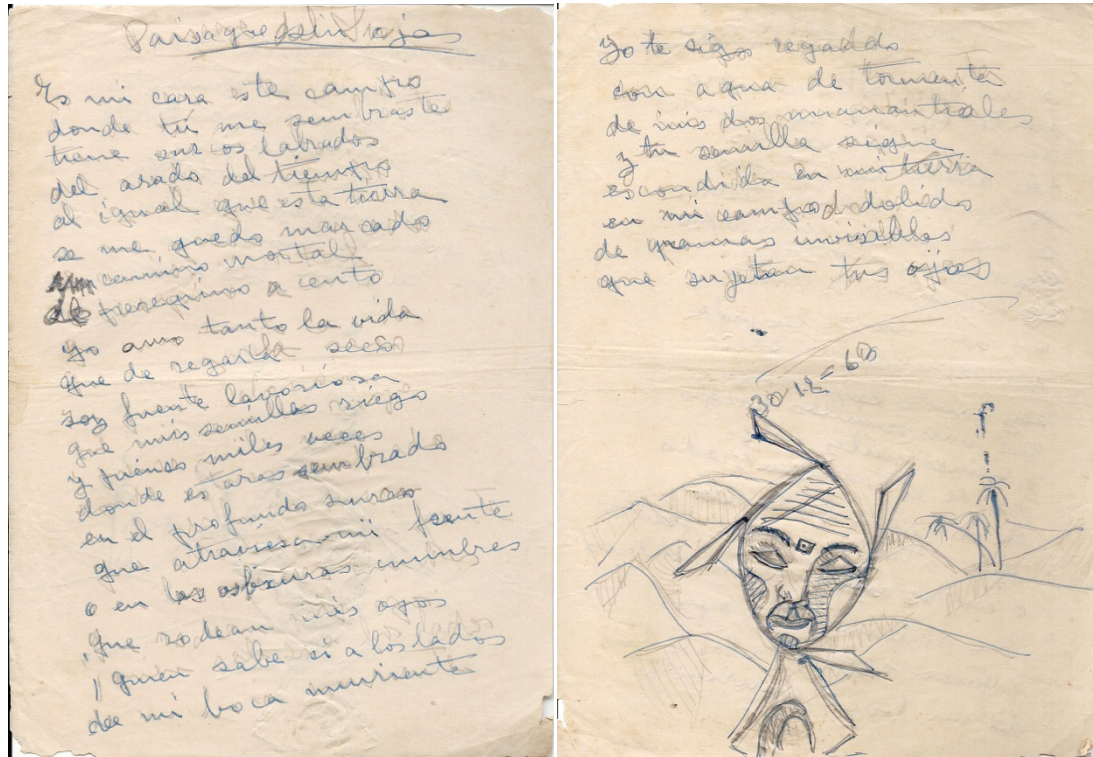 Paisague
Es mi cara este campo
donde tú me sembraste
tiene surcos labrados
del arado del tiempo
al igual que esta tierra
se me quedo marcados
camino mortal
de peregrino a cento
yo amo tanto la vida
que de regarla seco
soy fuente
que mis semillas riego
y pienso miles veces
donde estaras sembrado
en el profundo surco
que atraviesa mi frente
o en las oscuras cumbres
que rodean mis ojos
quien sabe si a los lados
de mi boca muriente
Yo te sigo regando
con agua de tormenta
de mis dos manantiales
y tu semilla sigue
escondida en mi tierra
en mi campo dolido
de gramas invisibles
que sujetan tus ojos
30-12=60